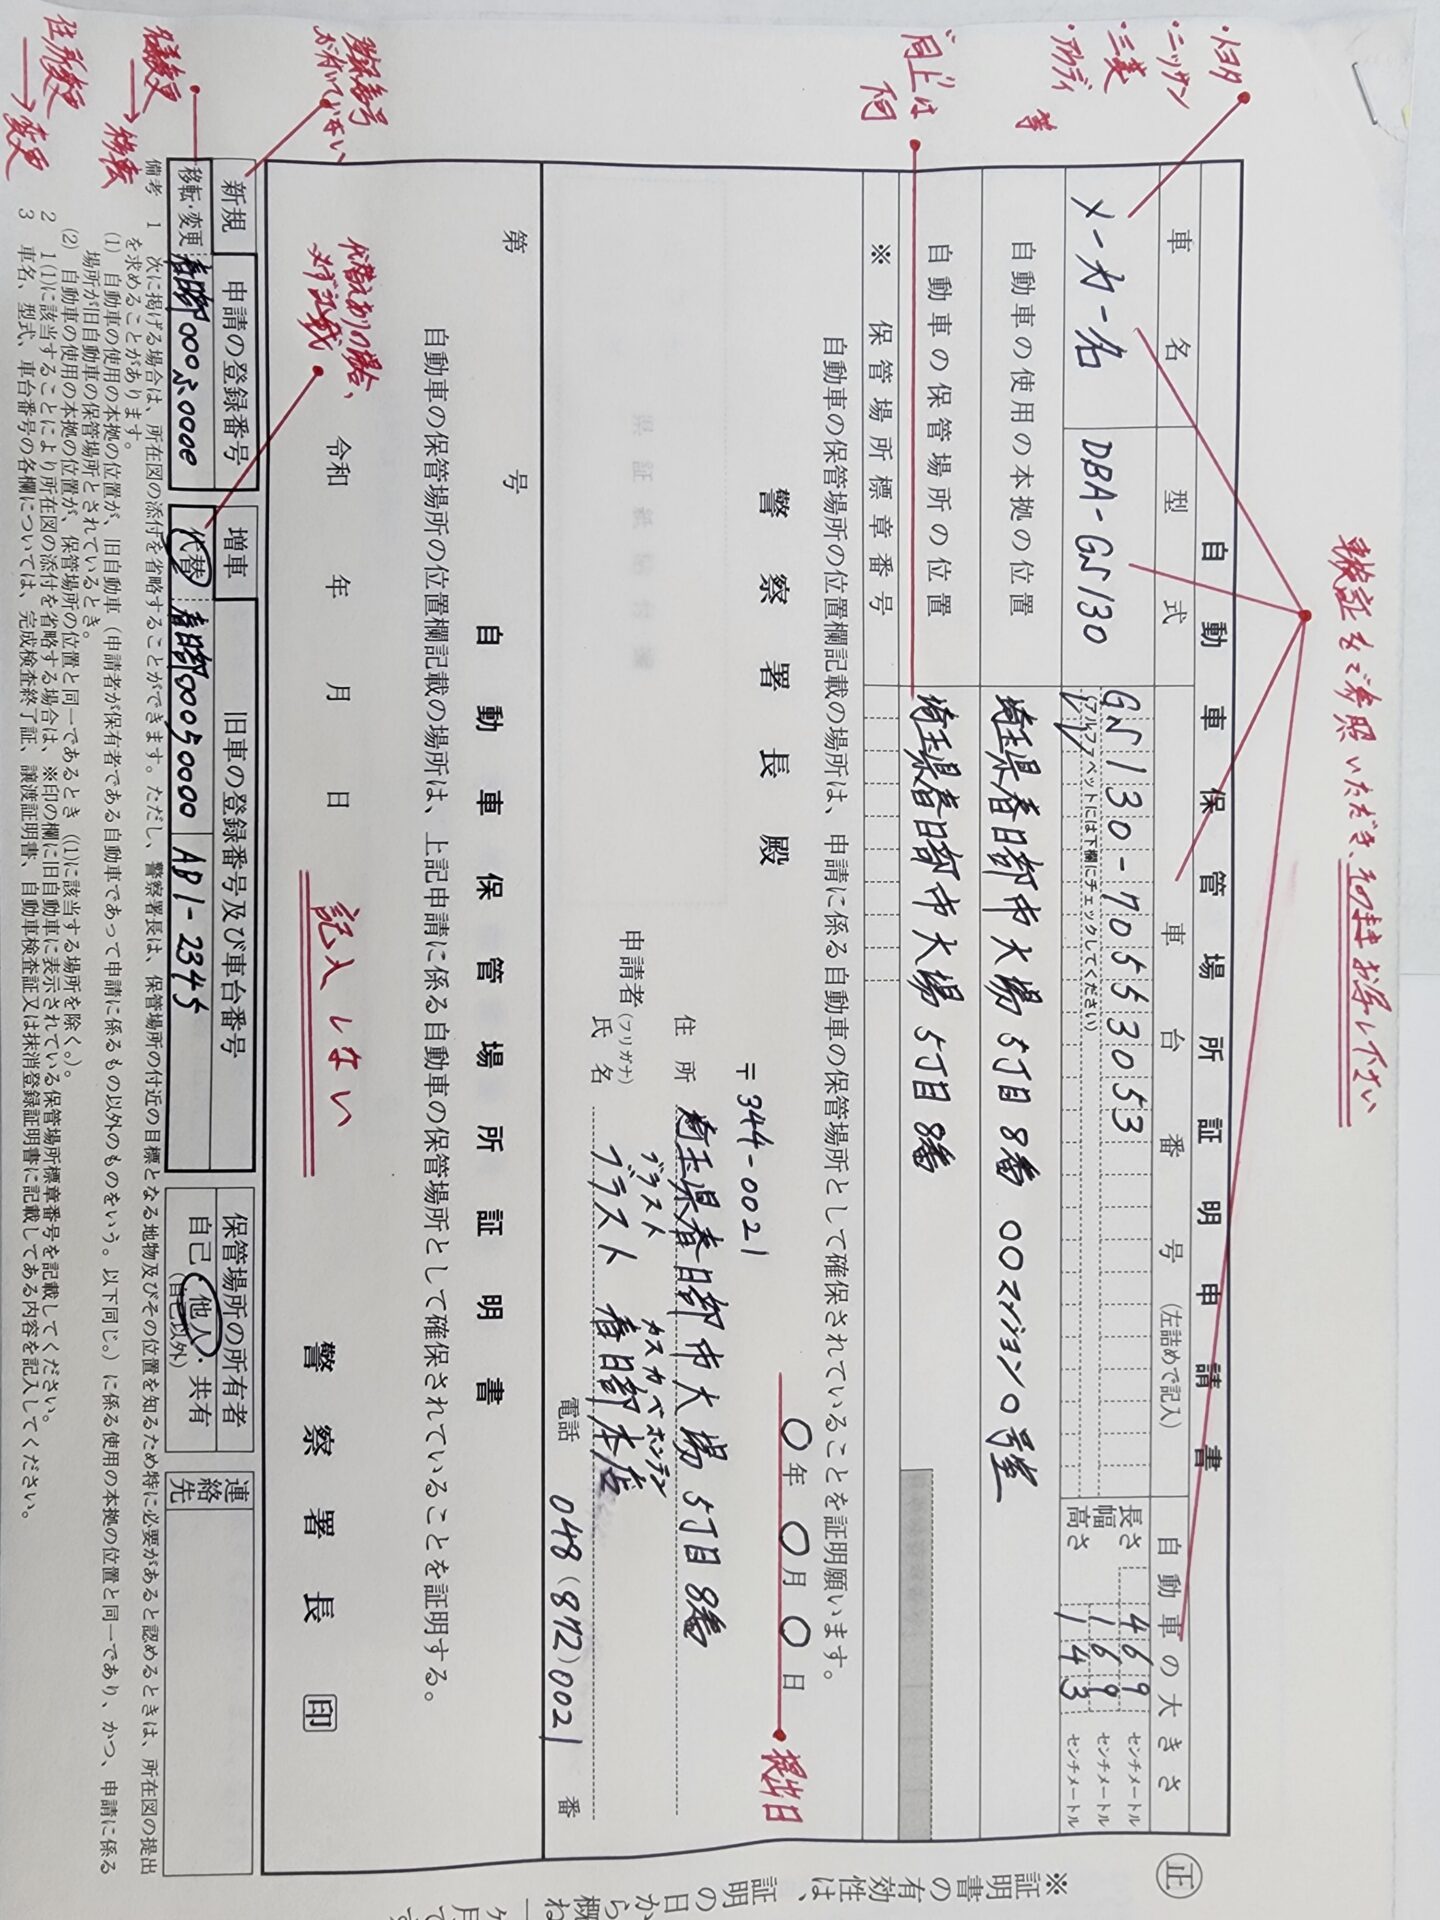 車検証をご参照いただき、そのままお写し下さい
・トヨタ
・ニッサン
・三菱
・アウディ
等
"同上"は
不可
正
自動車保管場所証明申請書
車名
型式
車台番号（左詰めで記入）
自動車の大きさ
メーカー名
DBA-GS130
GS130-7055 3053
（アルファベットには下欄にチェックしてください）
長さ 469 センチメートル
幅 169 センチメートル
高さ 143 センチメートル
自動車の使用の本拠の位置
埼玉県春日部市大場5丁目8番 〇〇マンション〇号室
自動車の保管場所の位置
埼玉県春日部市大場5丁目8番
※ 保管場所標章番号
自動車の保管場所の位置欄記載の場所は、申請に係る自動車の保管場所として確保されていることを証明願います。
警察署長殿
〇年〇月〇日
提出日
〒344-0021
住所 埼玉県春日部市大場5丁目8番
申請者
（フリガナ） ブラスト カスカベホンテン
氏名 ブラスト 春日部本店
電話 048（872）0021 番
第 号
自動車保管場所証明書
自動車の保管場所の位置欄記載の場所は、上記申請に係る自動車の保管場所として確保されていることを証明する。
令和 年 月 日
記入しない
警察署長 印
登録番号
お付いていない
代替えありの場合、
必ず記載
名義変更→移転
住所変更→変更
新規
移転・変更
申請の登録番号
春日部000ふ0000
増車
代替
旧車の登録番号及び車台番号
春日部000ら0000 AB1-2345
保管場所の所有者
自己・他人・共有
（自己以外）
連絡先
備考 1 次に掲げる場合は、所在図の添付を省略することができます。ただし、警察署長は、保管場所の付近の目標となる地物及びその位置を知るため特に必要があると認めるときは、所在図の提出
を求めることがあります。
(1) 自動車の使用の本拠の位置が、旧自動車（申請者が保有者である自動車であって申請に係るもの以外のものをいう。以下同じ。）に係る使用の本拠の位置と同一であり、かつ、申請に係る
場所が旧自動車の保管場所とされているとき。
(2) 自動車の使用の本拠の位置が、保管場所の位置と同一であるとき（(1)に該当する場所を除く。）。
2 1(1)に該当することにより所在図の添付を省略する場合は、※印の欄に旧自動車に表示されている保管場所標章番号を記載してください。
3 車名、型式、車台番号の各欄については、完成検査終了証、譲渡証明書、自動車検査証又は抹消登録証明書に記載してある内容を記入してください。
※証明書の有効性は、証明の日から概ね一ヶ月です